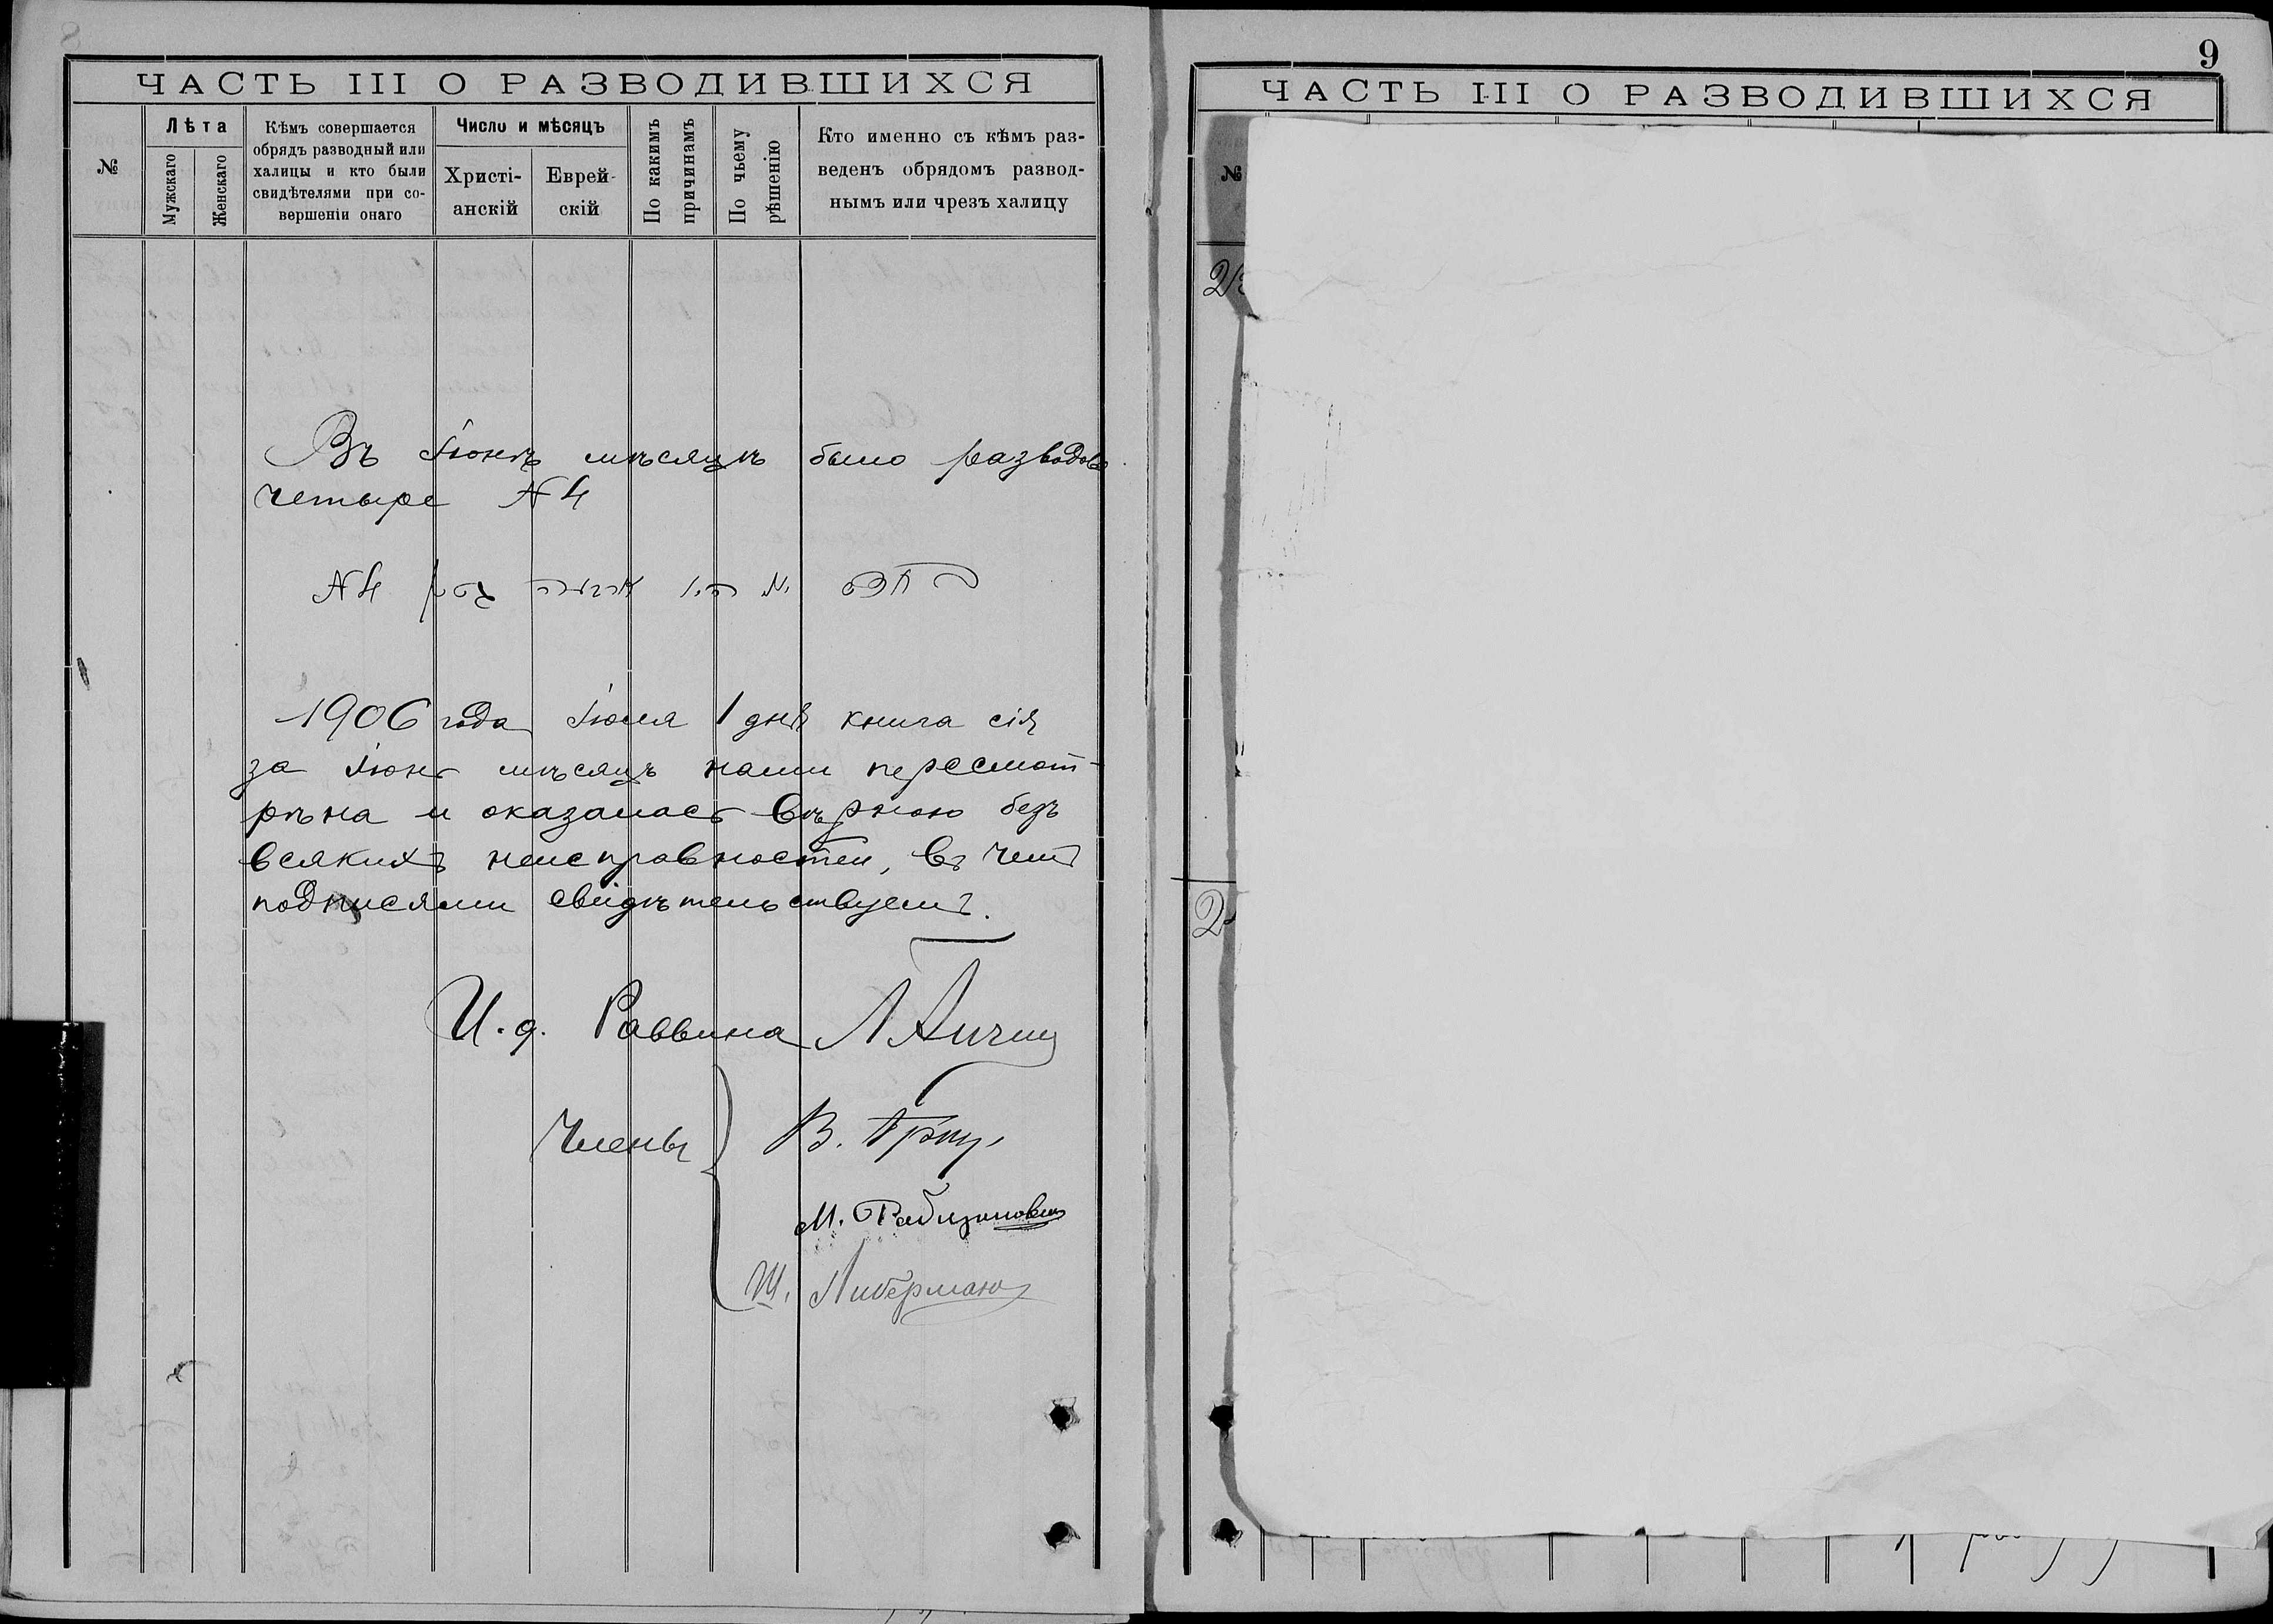 8
ЧАСТЬ III О РАЗВОДИВШИХСЯ
№
Лѣта
Мужскаго
Женскаго
Кѣмъ совершается
обрядъ разводный или
халицы и кто были
свидѣтелями при со-
вершеніи онаго
Число и мѣсяцъ
Христі-
анскій
Еврей-
скій
По какимъ
причинамъ
По чьему
рѣшенію
Кто именно съ кѣмъ раз-
веденъ обрядомъ развод-
нымъ или чрезъ халицу
Въ Іюнѣ мѣсяцѣ было разводовъ
четыре № 4
№ 4
1906 года Іюля 1 дня книга сія
за Іюнь мѣсяцъ нами пересмот-
рѣна и оказалась вѣрною безъ
всякихъ неисправностей, въ чемъ
подписями свидѣтельствуемъ.
И. д. Раввина Л
Члены
В.
М. Рабиновичъ
Ш. Либерманъ
9
ЧАСТЬ III О РАЗВОДИВШИХСЯ
№
2
2